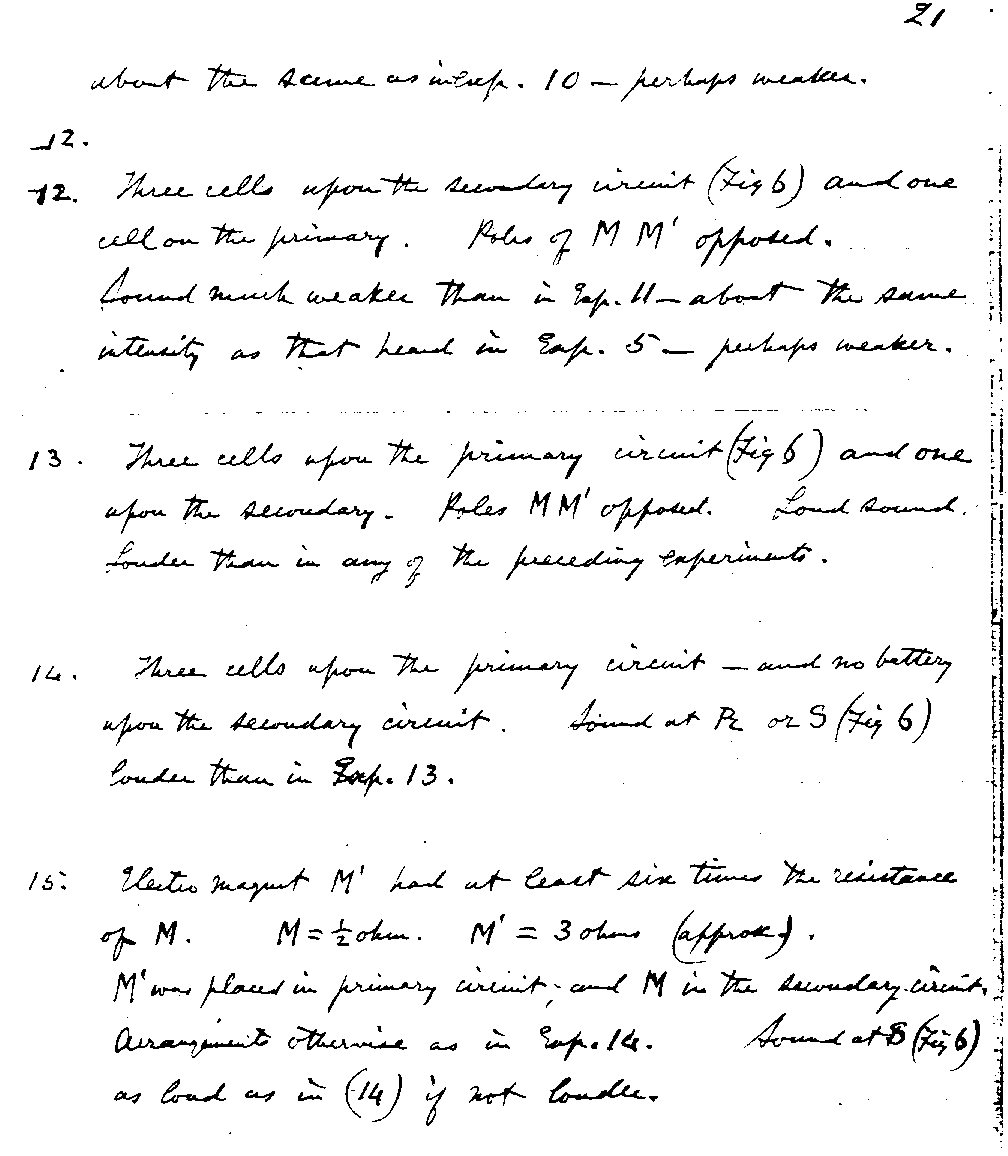 21
about the same as in Exp. 10 — perhaps weaker.
12.
12. Three cells upon the secondary circuit (Fig 6) and one
cell on the primary. Poles of M M' opposed.
Sound much weaker than in Exp. 11 — about the same
intensity as that heard in Exp. 5 — perhaps weaker.
13. Three cells upon the primary circuit (Fig 6) and one
upon the secondary. Poles M M' opposed. Loud sound.
Louder than in any of the preceding experiments.
14. Three cells upon the primary circuit — and no battery
upon the secondary circuit. Sound at R or S (Fig 6)
louder than in Exp. 13.
15. Electro magnet M' had at least six times the resistance
of M. M = ½ ohm. M' = 3 ohms (approx).
M' was placed in primary circuit, and M in the secondary circuit.
Arrangements otherwise as in Exp. 14. Sound at S (Fig 6)
as loud as in (14) if not louder.